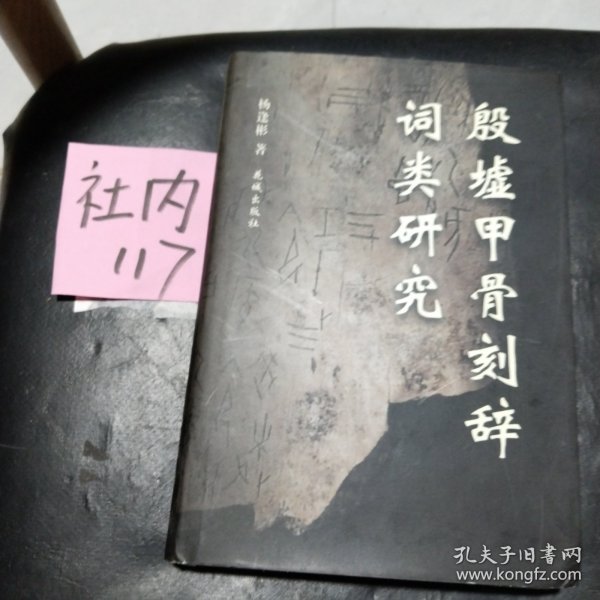 殷墟甲骨刻辞
词类研究
杨逢彬 著
花城出版社
社内
117
孔夫子旧书网
www.kongfz.com